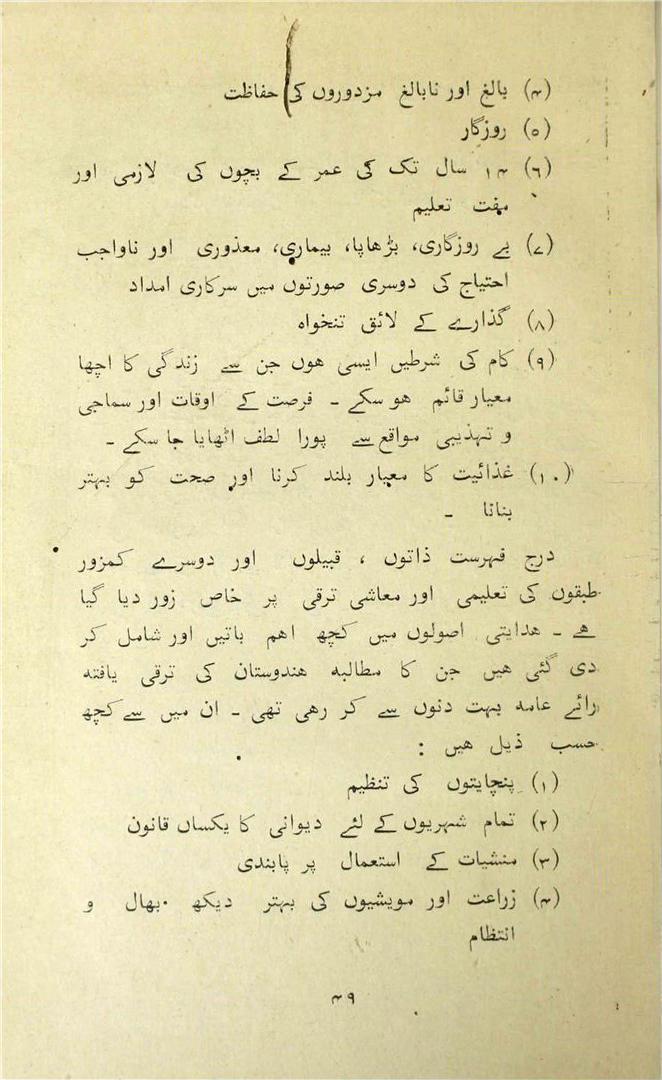 (۴) بالغ اور نابالغ مزدوروں کی حفاظت
(۵) روزگار
(۶) ۱۴ سال تک کی عمر کے بچوں کی لازمی اور
مفت تعلیم
(۷) بے روزگاری، بڑھاپا، بیماری، معذوری اور ناواجب
احتیاج کی دوسری صورتوں میں سرکاری امداد
(۸) گذارے کے لائق تنخواہ
(۹) کام کی شرطیں ایسی ہوں جن سے زندگی کا اچھا
معیار قائم ہو سکے ۔ فرصت کے اوقات اور سماجی
و تہذیبی مواقع سے پورا لطف اٹھایا جا سکے ۔
(۱۰) غذائیت کا معیار بلند کرنا اور صحت کو بہتر
بنانا ۔
درج فہرست ذاتوں ، قبیلوں اور دوسرے کمزور
طبقوں کی تعلیمی اور معاشی ترقی پر خاص زور دیا گیا
ہے ۔ ہدایتی اصولوں میں کچھ اہم باتیں اور شامل کر
دی گئی ہیں جن کا مطالبہ ہندوستان کی ترقی یافتہ
رائے عامہ بہت دنوں سے کر رہی تھی ۔ ان میں سے کچھ
حسب ذیل ہیں :
(۱) پنچایتوں کی تنظیم
(۲) تمام شہریوں کے لئے دیوانی کا یکساں قانون
(۳) منشیات کے استعمال پر پابندی
(۴) زراعت اور مویشیوں کی بہتر دیکھ بھال و
انتظام
۴۹